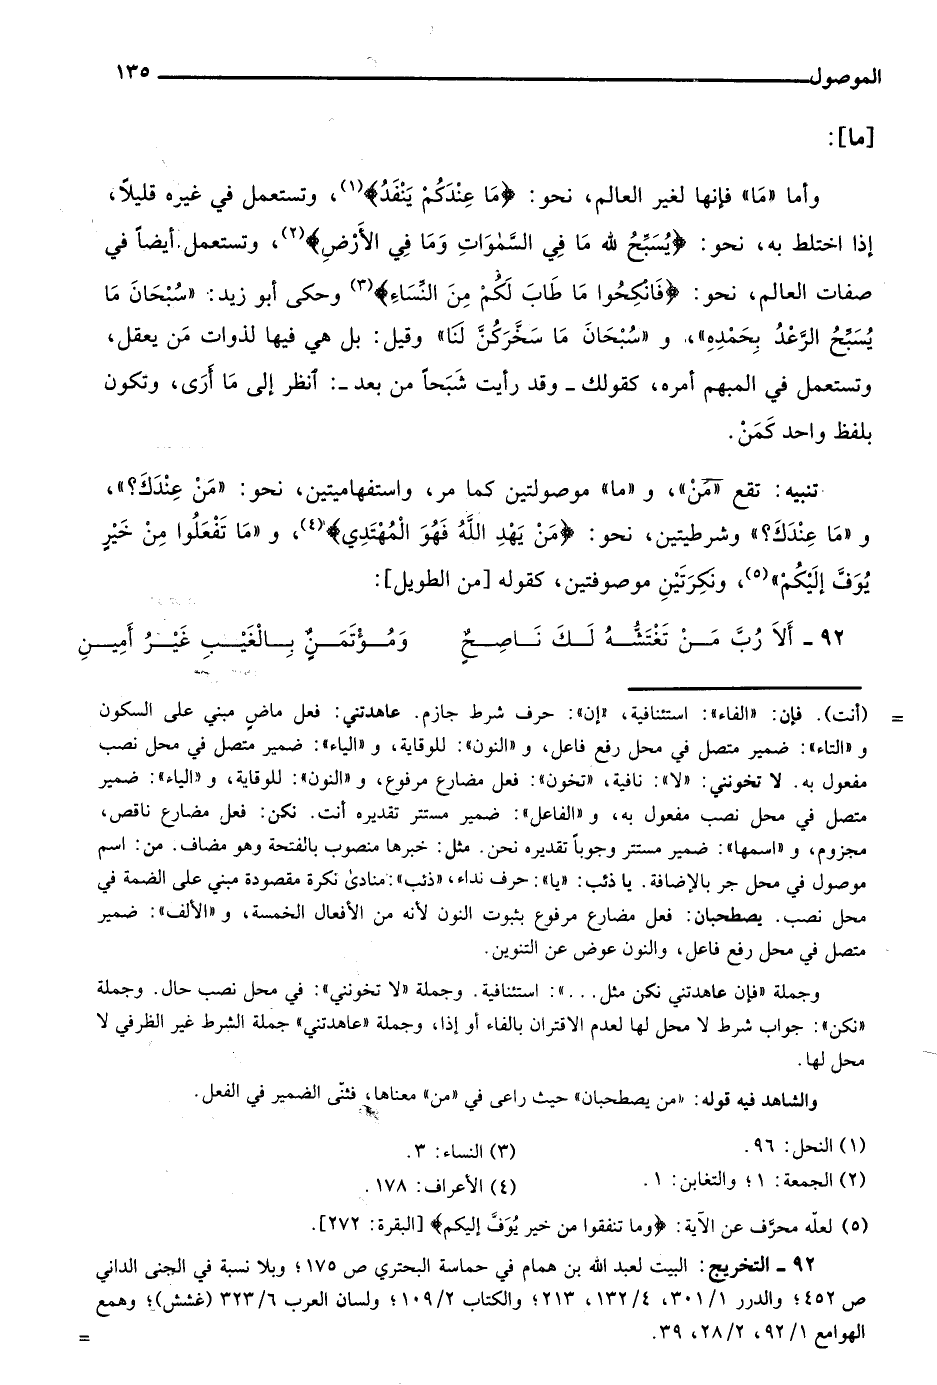 الموصول ١٣٥
[ما]:
وأما «مَا» فإنها لغير العالم، نحو: ﴿مَا عِنْدَكُمْ يَنْفَدُ﴾(١)، وتستعمل في غيره قليلاً،
إذا اختلط به، نحو: ﴿يُسَبِّحُ لله مَا فِي السَّمٰوَاتِ وَمَا فِي الأَرْضِ﴾(٢)، وتستعمل أيضاً في
صفات العالم، نحو: ﴿فَانْكِحُوا مَا طَابَ لَكُمْ مِنَ النِّسَاءِ﴾(٣) وحكى أبو زيد: «سُبْحَانَ مَا
يُسَبِّحُ الرَّعْدُ بِحَمْدِهِ»، و «سُبْحَانَ مَا سَخَّرَكُنَّ لَنَا» وقيل: بل هي فيها لذوات مَن يعقل،
وتستعمل في المبهم أمره، كقولك ـ وقد رأيت شَبَحاً من بعد ـ: ٱنظر إلى مَا أَرَى، وتكون
بلفظ واحد كَمَنْ.
تنبيه: تقع «مَنْ»، و «ما» موصولتين كما مر، واستفهاميتين، نحو: «مَنْ عِنْدَكَ؟»،
و «مَا عِنْدَكَ؟» وشرطيتين، نحو: ﴿مَنْ يَهْدِ اللَّهُ فَهُوَ الْمُهْتَدِي﴾(٤)، و «مَا تَفْعَلُوا مِنْ خَيْرٍ
يُوَفَّ إِلَيْكُمْ»(٥)، ونَكِرَتَيْنِ موصوفتين، كقوله [من الطويل]:
٩٢ ـ أَلاَ رُبَّ مَــنْ تَغْتَشُّــهُ لَــكَ نَــاصِــحٌ وَمُــؤْتَمَــنٌ بِــالْغَيْــبِ غَيْــرُ أَمِيــنِ
= (أنت). فإن: «الفاء»: استئنافية، «إن»: حرف شرط جازم. عاهدتني: فعل ماضٍ مبني على السكون
و «التاء»: ضمير متصل في محل رفع فاعل، و «النون»: للوقاية، و «الياء»: ضمير متصل في محل نصب
مفعول به. لا تخونني: «لا»: نافية، «تخون»: فعل مضارع مرفوع، و «النون»: للوقاية، و «الياء»: ضمير
متصل في محل نصب مفعول به، و «الفاعل»: ضمير مستتر تقديره أنت. نكن: فعل مضارع ناقص،
مجزوم، و «اسمها»: ضمير مستتر وجوباً تقديره نحن. مثل: خبرها منصوب بالفتحة وهو مضاف. من: اسم
موصول في محل جر بالإضافة. يا ذئب: «يا»: حرف نداء، «ذئب»: منادىٰ نكرة مقصودة مبني على الضمة في
محل نصب. يصطحبان: فعل مضارع مرفوع بثبوت النون لأنه من الأفعال الخمسة، و «الألف»: ضمير
متصل في محل رفع فاعل، والنون عوض عن التنوين.
وجملة «فإن عاهدتني نكن مثل...»: استئنافية. وجملة «لا تخونني»: في محل نصب حال. وجملة
«نكن»: جواب شرط لا محل لها لعدم الاقتران بالفاء أو إذا، وجملة «عاهدتني» جملة الشرط غير الظرفي لا
محل لها.
والشاهد فيه قوله: «من يصطحبان» حيث راعى في «من» معناها، فثنّى الضمير في الفعل.
(١) النحل: ٩٦.
(٢) الجمعة: ١؛ والتغابن: ١.
(٣) النساء: ٣.
(٤) الأعراف: ١٧٨.
(٥) لعلّه محرَّف عن الآية: ﴿وما تنفقوا من خير يُوَفَّ إليكم﴾ [البقرة: ٢٧٢].
٩٢ ـ التخريج: البيت لعبد الله بن همام في حماسة البحتري ص ١٧٥؛ وبلا نسبة في الجنى الداني
ص ٤٥٢؛ والدرر ١/ ٣٠١، ٤/ ١٣٢، ٢١٣؛ والكتاب ٢/ ١٠٩؛ ولسان العرب ٦/ ٣٢٣ (غشش)؛ وهمع
الهوامع ١/ ٩٢، ٢/ ٢٨، ٣٩. =